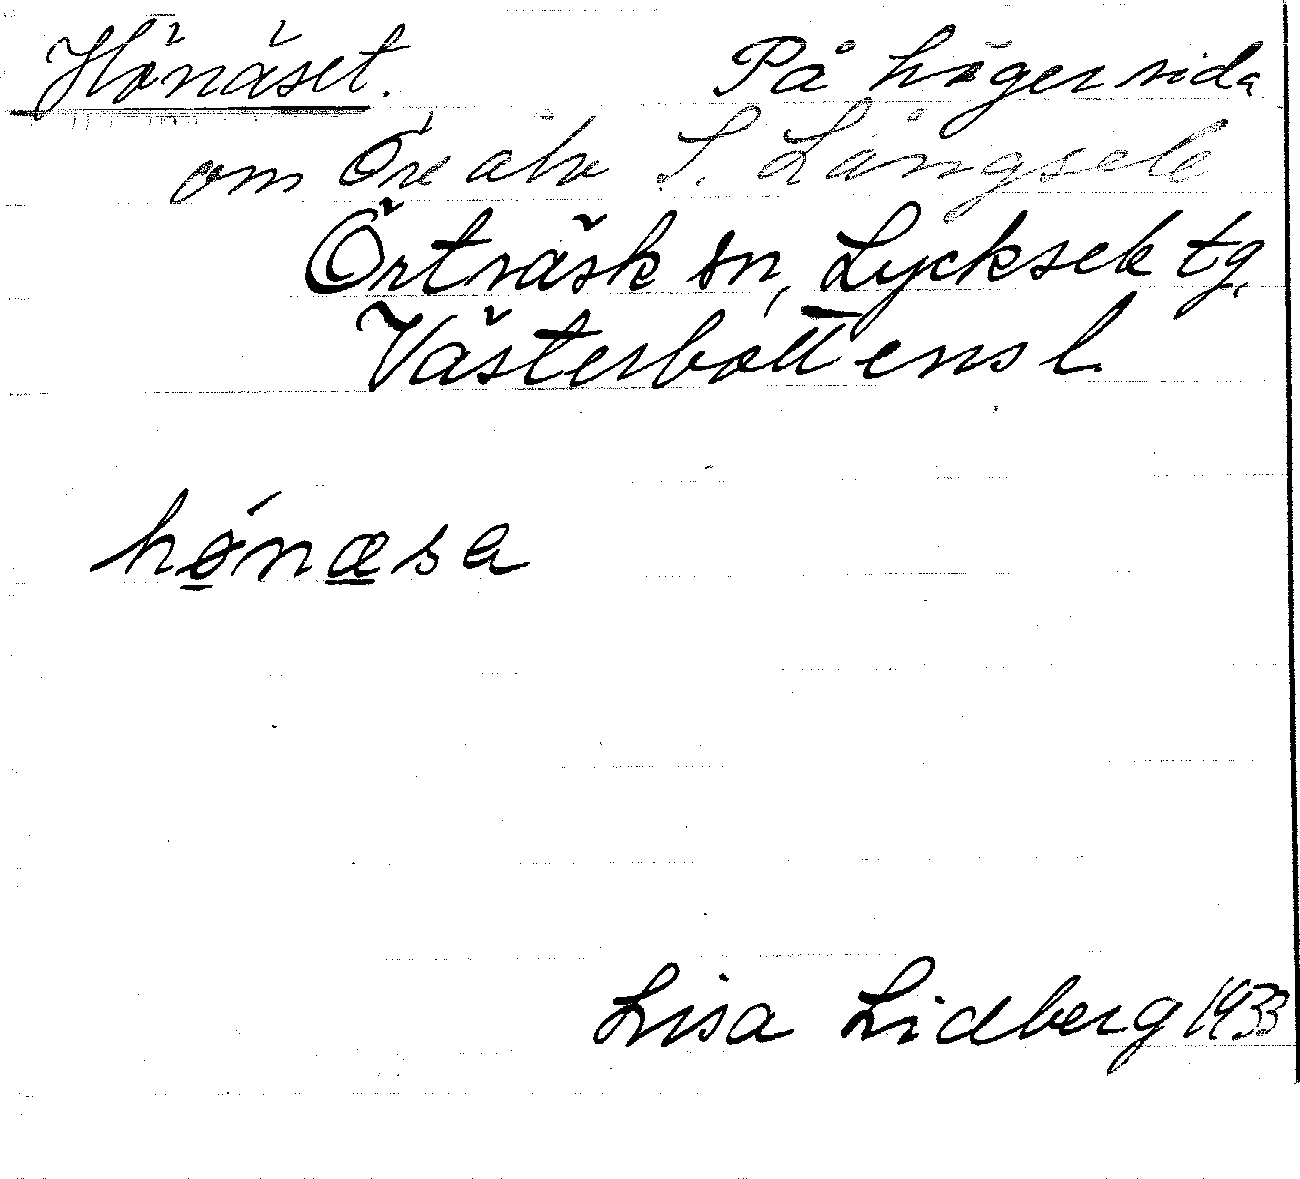 Hönäset. På höger sida
om Öre älv S. Långsele
Örträsk sn, Lycksele tg,
Västerbottens l.
hø̱næ̱sa
Lisa Lidberg 1933